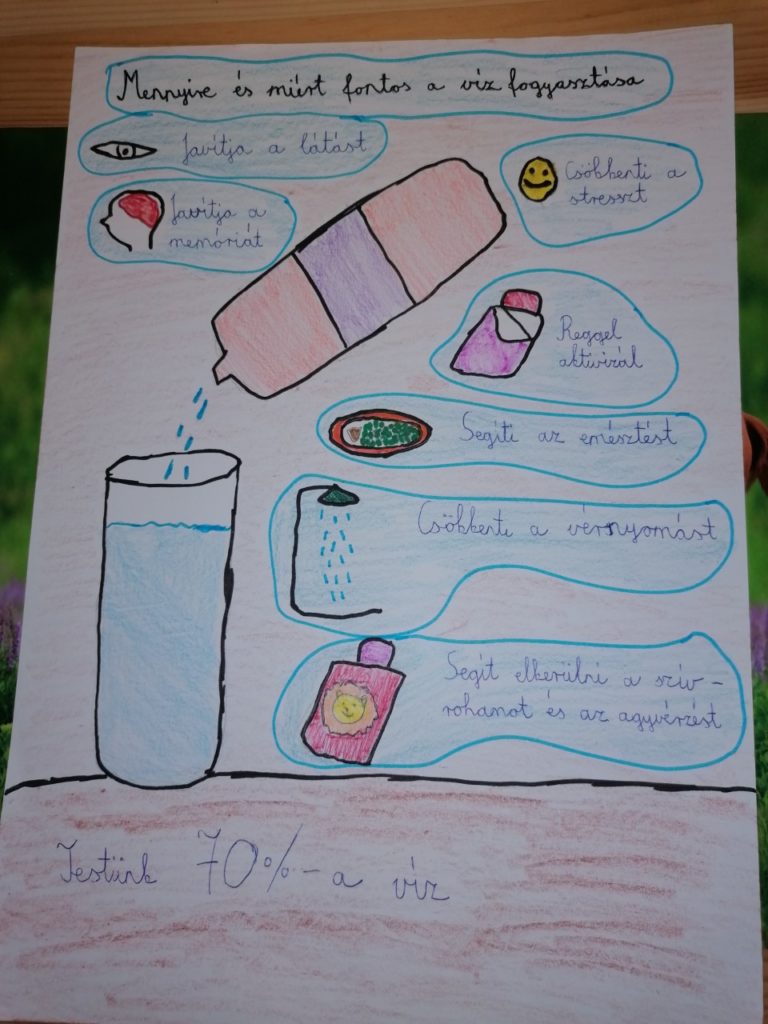 Mennyire és miért fontos a víz fogyasztása
Javítja a látást
Javítja a
memóriát
Csökkenti a
stresszt
Reggel
aktivizál
Segíti az emésztést
Csökkenti a vérnyomást
Segít elkerülni a szív-
rohamot és az agyvérzést
Testünk 70%-a víz